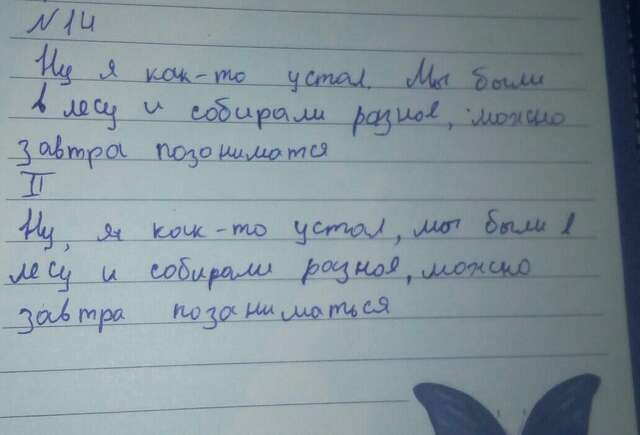 N 14
Ну я как-то устал. Мы были
в лесу и собирали разное, можно
завтра позаниматся
II
Ну, я как-то устал, мы были в
лесу и собирали разное, можно
завтра позаниматься